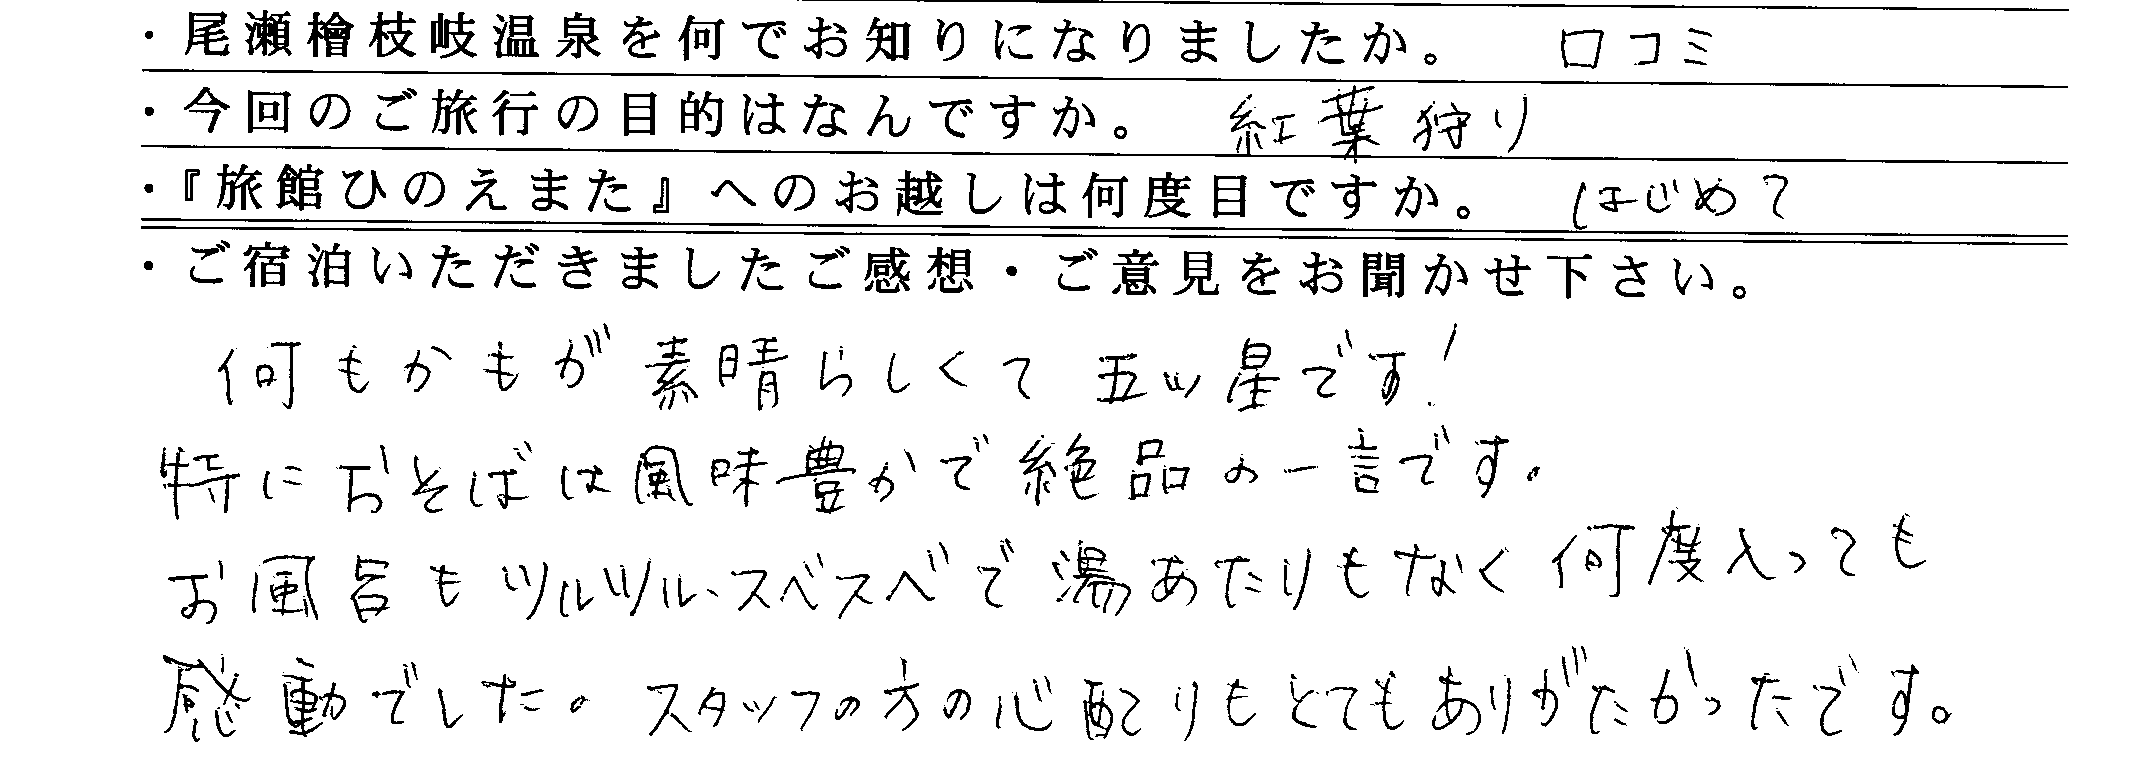 ・尾瀬檜枝岐温泉を何でお知りになりましたか。 口コミ
・今回のご旅行の目的はなんですか。 紅葉狩り
・『旅館ひのえまた』へのお越しは何度目ですか。 はじめて
・ご宿泊いただきましたご感想・ご意見をお聞かせ下さい。
何もかもが素晴らしくて五ツ星です!
特におそばは風味豊かで絶品の一言です。
お風呂もツルツル、スベスベで湯あたりもなく何度入っても
感動でした。スタッフの方の心配りもとてもありがたかったです。